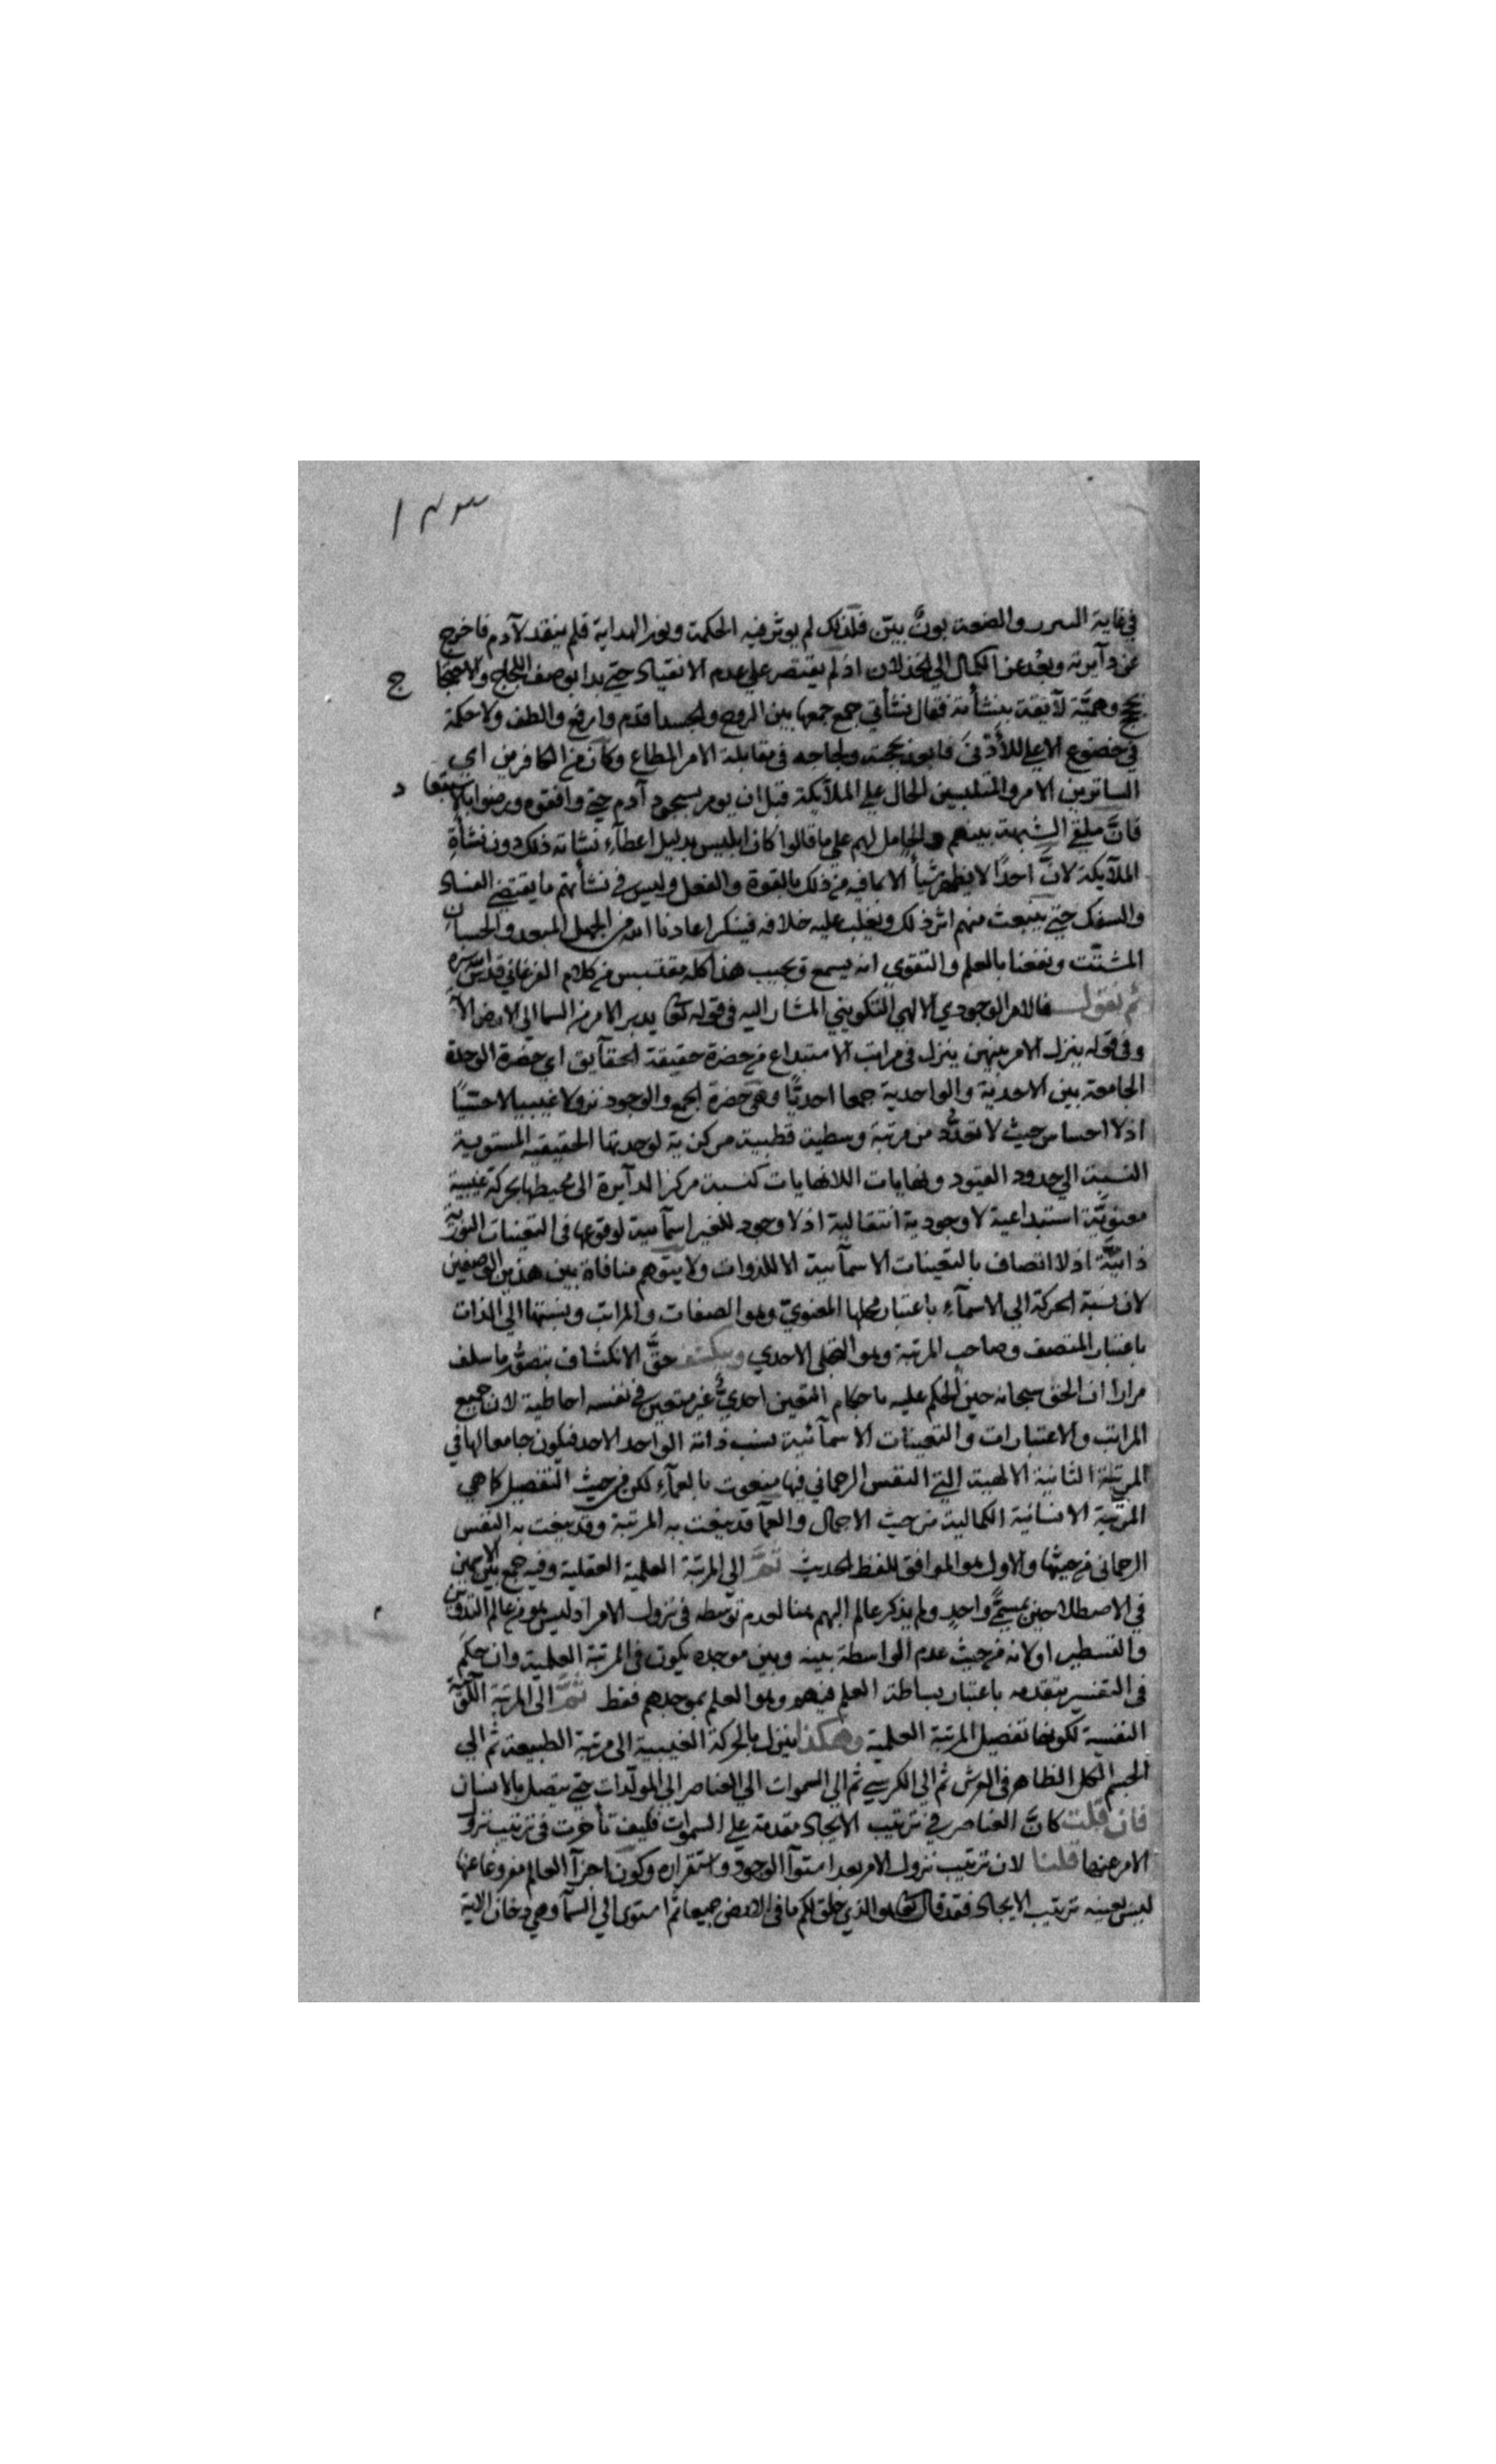 ١٤٣
في غاية السرر والضعة بون بيّن فلذلك لم يوثر فيه الحكمة ونور الهداية فلم ينقد لآدم فاخرج
عن دآيرته وبعُد عن الكمال الي الخذلان اذ لم يقتصر علي عدم الانقياد حتي بدا بوصف اللجاج والاحتجا
ج
بحجج وهميّة لآيقة بنشأته فقال نشأتي جمع جمعها بين الروح والجسد اقدم وارفع والطف ولا حكمة
في خضوع الاعلي للأدنى فابدى بحجته ولجاجه في مقابلة الامر المطاع وكان من الكافرين اي
الساترين الامر والمتلبسين الحال علي الملآيكة قبل ان يومر بسجود آدم حتي وافقوه ورضوا بالاستبعا
د
فانَّ ملقي الشبهة بينهم والحامل لهم علي ما قالوا كان ابليس بدليل اعطآء نشاته ذلك دون نشأةِ
الملآيكة لانَّ احدًا لا يظهر شيأ الا بما فيه من ذلك بالقوة والفعل وليس في نشأتهم ما يقتضي الفساد
والسفك حتي ينبعث منهم اثر ذلك ويغلب عليه خلافه فينكر اعاذنا الله من الجهل المبعد والحسبان
المشتّت ونفعنا بالعلم والتقوي انه يسمع ويجيب هذا كله مقتبس من كلام الفرغاني قدس الله سره
ثم نقول فالامر الوجودي الالهي التكويني المشار اليه في قوله تعا يدبر الامر من السما الي الارض الآ
وفي قوله ينزل الامر بينهن ينزل في مراتب الاستبداع من حضرة حقيقة الحقآيق اي حضرة الوحدة
الجامعة بين الاحديّة والواحدية جمعا احديًّا وهي حضرة الجمع والوجود نزولا غيبيا لا حسّيًا
اذ لا احساس حيث لا تعدُّد من مرتبة وسطية قطبية مركزية لوحدتها الحقيقية المستوية
النسبة الي حدود القيود ونهايات اللانهايات كنسبة مركز الدآيرة الى محيطها بحركة غيبية
معنويَّة استبداعية لا وجودية انتقالية اذ لا وجود للغير اسمآيية لوقوعها في التعينات النوريّة
ذاتيَّة اذ لا اتصاف بالتعينات الاسمآيية الا للذوات ولا يتوهم منافاة بين هذين الوصفين
لان نسبة الحركة الي الاسمآءِ باعتبار محلها المعنويّ وهو الصفات والمراتب ونسبتها الي الذات
باعتبار المتصف وصاحب المرتبة وهو التجلى الاحدي وينكشف حقَّ الانكشاف بتصوُّر ما سلف
مرارا ان الحق سبحانه حين الحكم عليه باحكام التعين احديٌّ غير متعين في نفسه احاطية لان جميع
المراتب والاعتبارات والتعينات الاسمآئية نسب ذاته الواحد الاحد فيكون جامعا لها في
المرتبة الثانية الالهية التي النفس الرحماني فيها منعوت بالعمآءِ لكن من حيث التفصيل كما هي
المرتبة الانسانية الكمالية من حيث الاجمال والعمآ قد ينعت به المرتبة وقد ينعت به النفس
الرحمانى من حيثها والاول هو الموافق للفظ الحديث ثمَّ الى المرتبة العلمية العقلية وفيه جمع بين الاسمين
في الاصطلاحين بمسمًّى واحدٍ ولم يذكر عالم المهيم هنا لعدم توسّطه في نزول الامر اذ ليس هو من عالم التدوين
والتسطير او لانه من حيث عدم الواسطة بينه وبين موجده يكون في المرتبة العلمية وان حكمَ
فى التفسير بتقدمه باعتبار بساطة العلم فيهم وهو العلم بموجدهم فقط ثمَّ الى المرتبة
النفسية لكونها تفصيل المرتبة العلمية وهكذا ينزل بالحركة الغيبية الى مرتبة الطبيعة ثم الي
الجسم الكل الظاهر في العرش ثم الي الكرسي ثم الي السموات الي العناصر الي المولّدات حتي يتصل بالانسان
فان قلت كانَّ العناصر في ترتيب الايجاد مقدمة علي السموات فكيف تأخرت في ترتيب نزول
الامر عنها قلنا لان ترتيب نزول الامر بعد استوآ الوجود واستقراره وكون اجزآ العالم مفروغا عنها
ليس بعينه ترتيب الايجاد فقد قال تعا هو الذي خلق لكم ما في الارض جميعا ثم استوى الي السمآ وهي دخان الاية